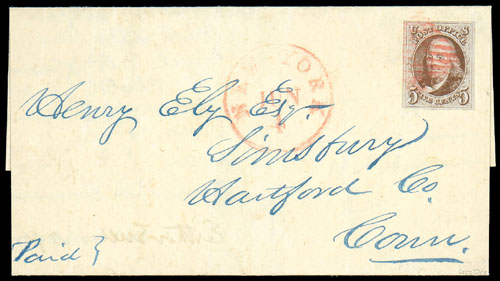 U S
POST OFFICE
5 FIVE CENTS 5
NEW YORK
JUN
Henry Ely Esq.
Simsbury
Hartford Co.
Conn.
Paid